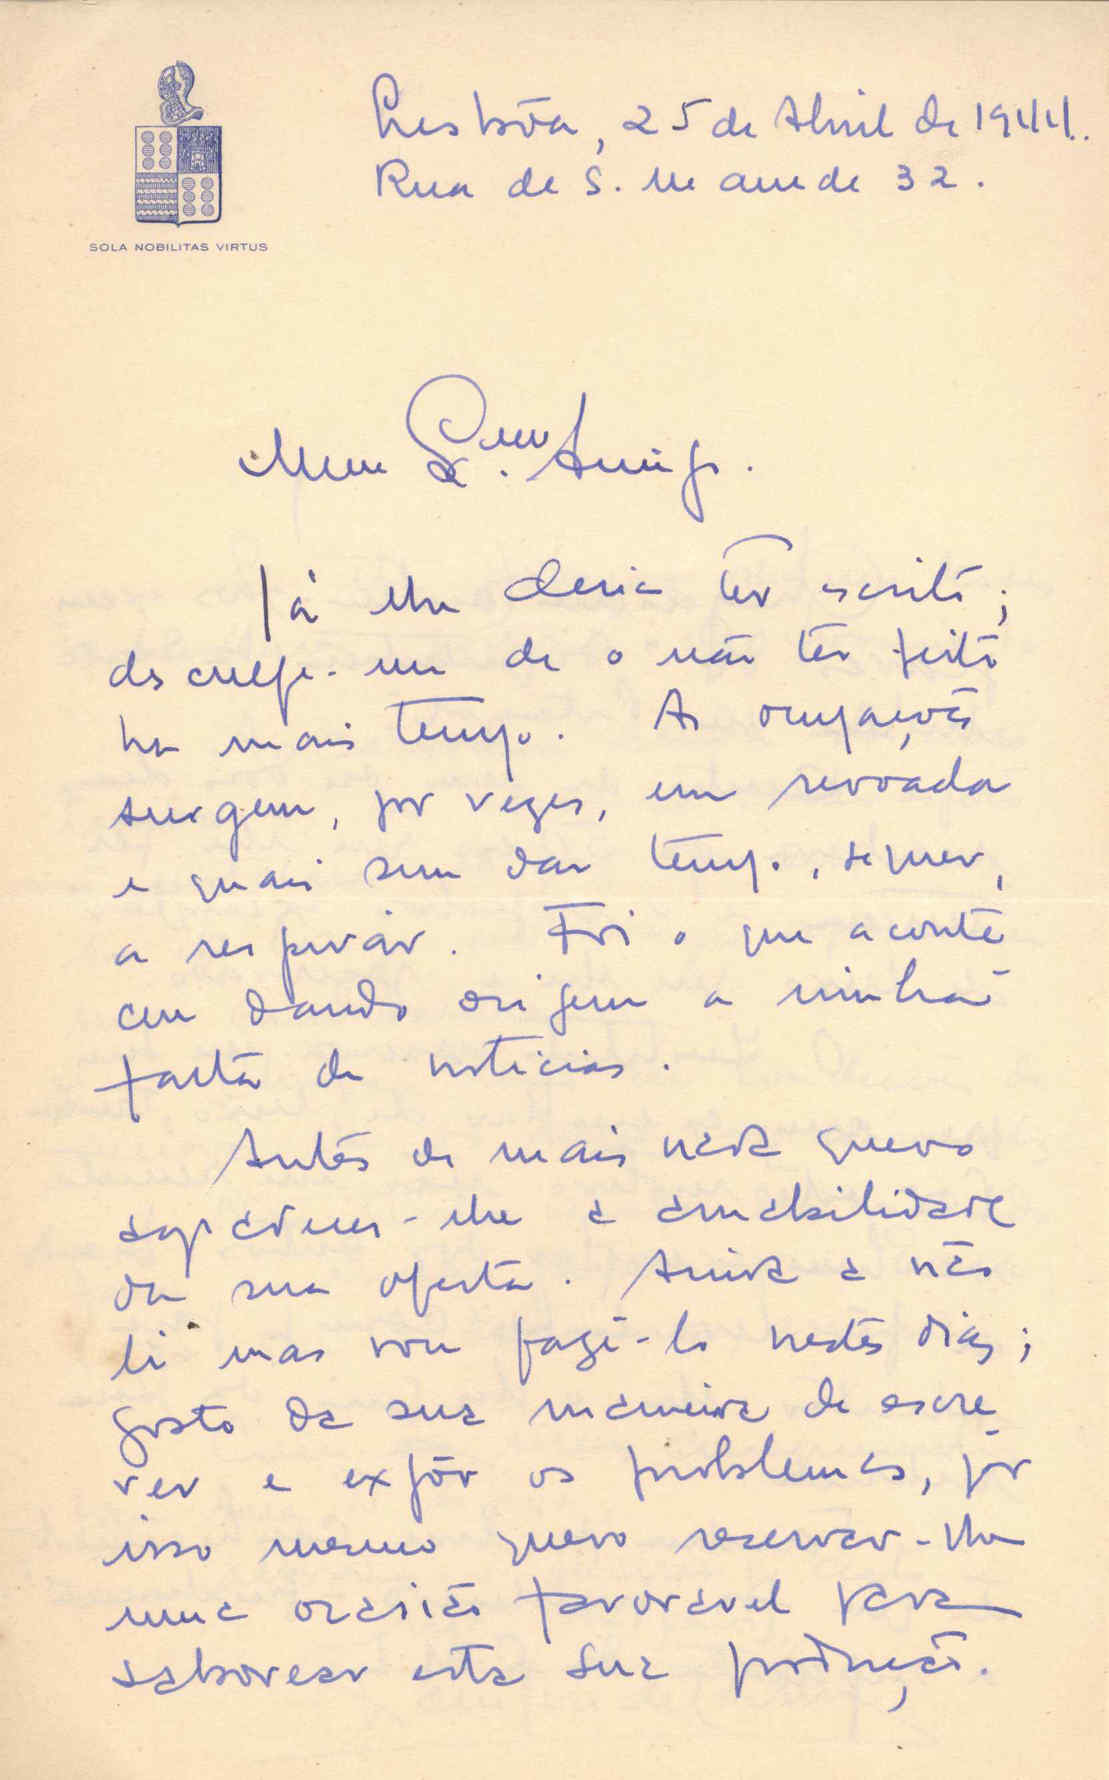 SOLA NOBILITAS VIRTUS
Lisbôa, 25 de Abril de 1944.
Rua de S. Mamede 32.
Meu Ex.mo Amigo.
Já lhe devia ter escrito;
desculpe-me de o não ter feito
ha mais tempo. As ocupações
surgem, por vezes, em revoada
e quasi sem dar tempo, sequer,
a respirar. Foi o que aconte
ceu dando origem a minha
falta de noticias.
Antes de mais nada quero
agradecer-lhe a amabilidade
da sua oferta. Ainda a não
li mas vou fazê-lo nestes dias;
gosto da sua maneira de escre
ver e expôr os problemas, por
isso mesmo quero reservar-lhe
uma ocasião favoravel para
saborear esta sua produção.